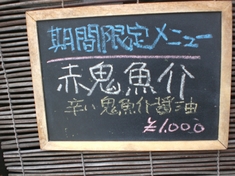 期間限定メニュー
赤鬼魚介
辛い鬼魚介醤油
¥1,000